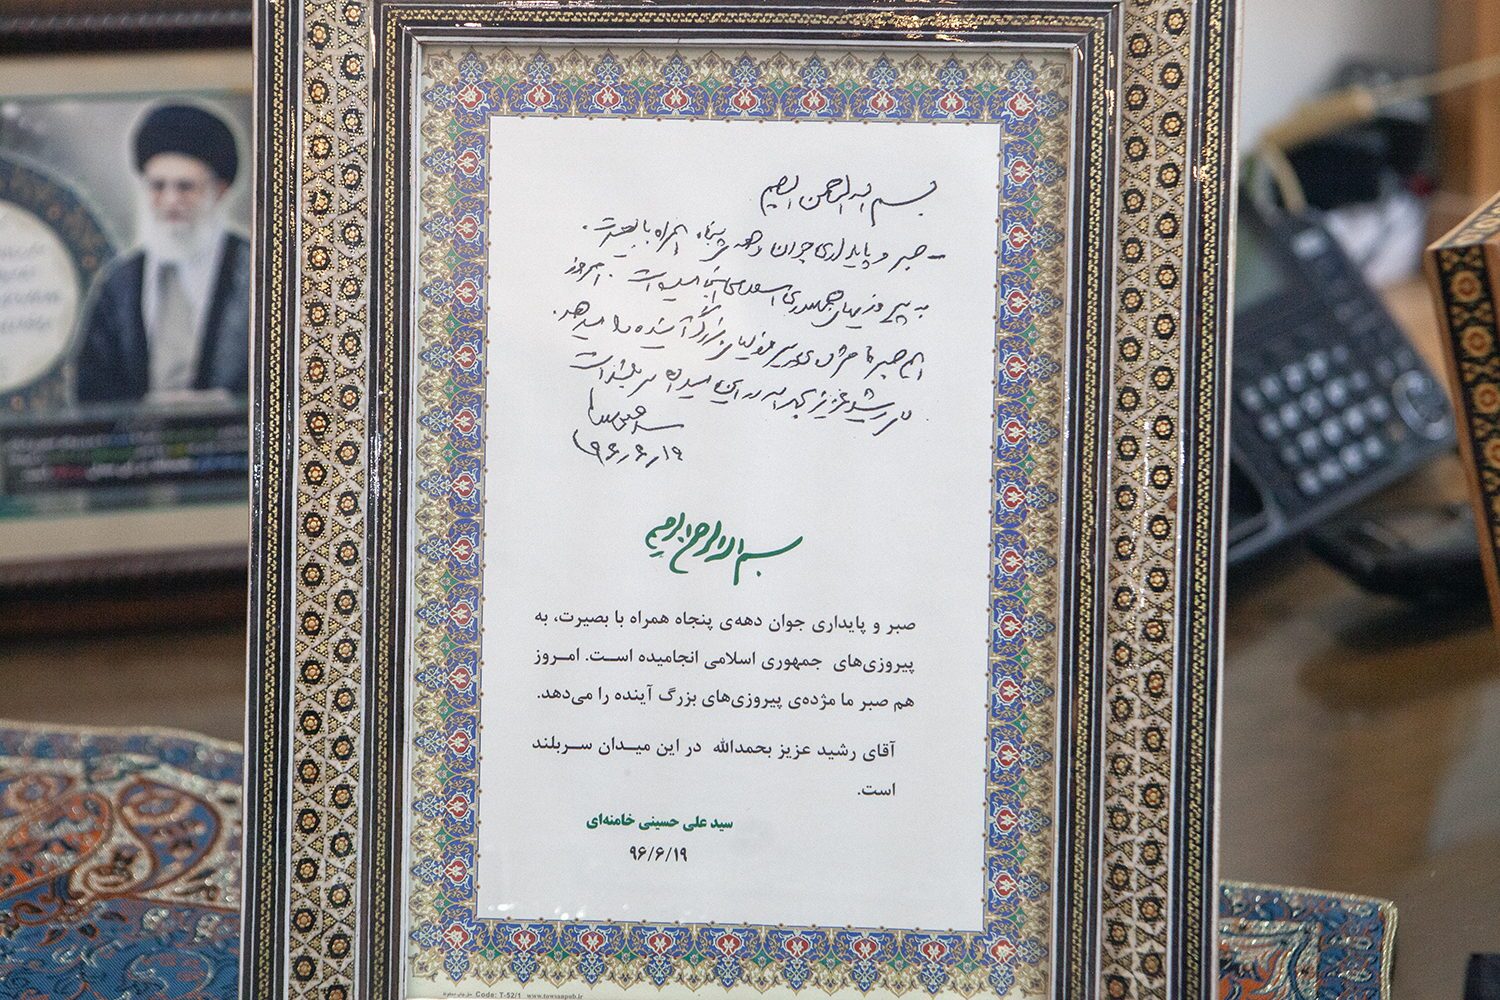 بسم الله الرحمن الرحیم
- صبر و پایداری جوان دهه‌ی پنجاه همراه با بصیرت،
به پیروزیهای جمهوری اسلامی انجامیده است. امروز
هم صبر ما مژده‌ی پیروزیهای بزرگ آینده را میدهد.
آقای رشید عزیز بحمدالله در این میدان سربلند است
۹۶٫۶٫۱۹
بسم الله الرحمن الرحیم
صبر و پایداری جوان دهه‌ی پنجاه همراه با بصیرت، به
پیروزی‌های جمهوری اسلامی انجامیده است. امروز
هم صبر ما مژده‌ی پیروزی‌های بزرگ آینده را می‌دهد.
آقای رشید عزیز بحمدالله در این میدان سربلند
است.
سید علی حسینی خامنه‌ای
۹۶/۶/۱۹
Code: T-52/1 www.towsaapub.ir